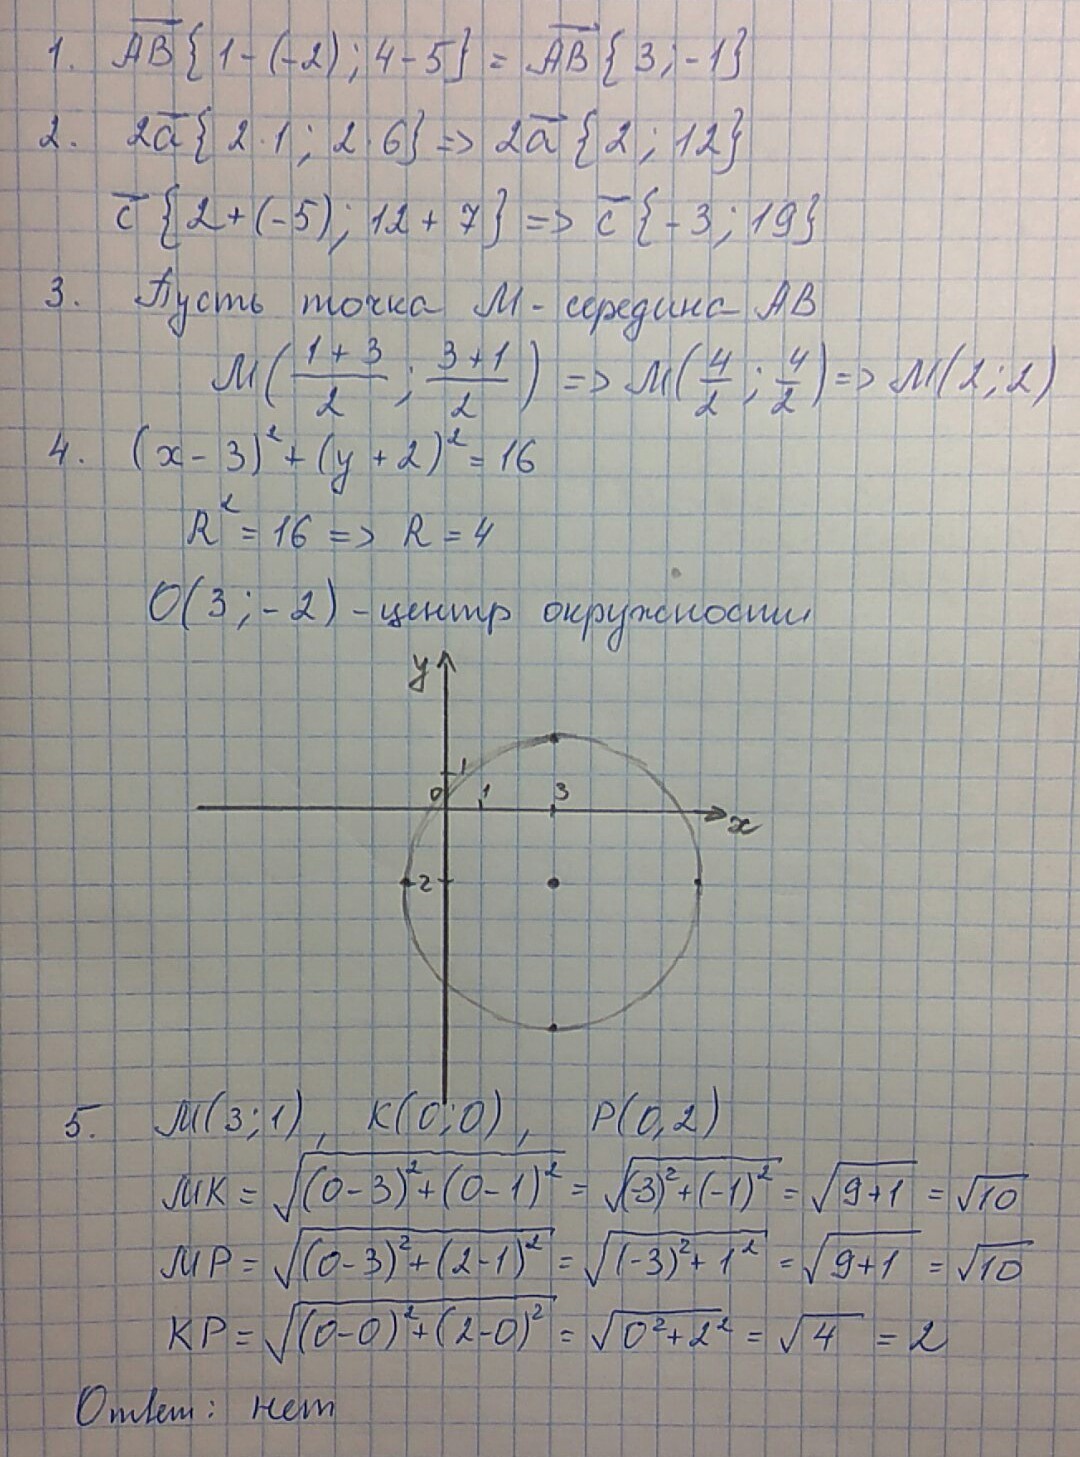 1. AB{1-(-2); 4-5} = AB{3;-1}
2. 2a{2·1; 2·6} => 2a{2; 12}
c{2+(-5); 12+7} => c{-3; 19}
3. Пусть точка М - середина АВ
М((1+3)/2; (3+1)/2) => М(4/2; 4/2) => М(2; 2)
4. (x-3)² + (y+2)² = 16
R² = 16 => R = 4
О(3;-2) - центр окружности
y
1
0 1 3
x
-2
5. М(3;1), К(0;0), Р(0,2)
МК = √((0-3)²+(0-1)²) = √(-3)²+(-1)² = √9+1 = √10
МР = √((0-3)²+(2-1)²) = √((-3)²+1²) = √9+1 = √10
КР = √((0-0)²+(2-0)²) = √0²+2² = √4 = 2
Ответ: нет